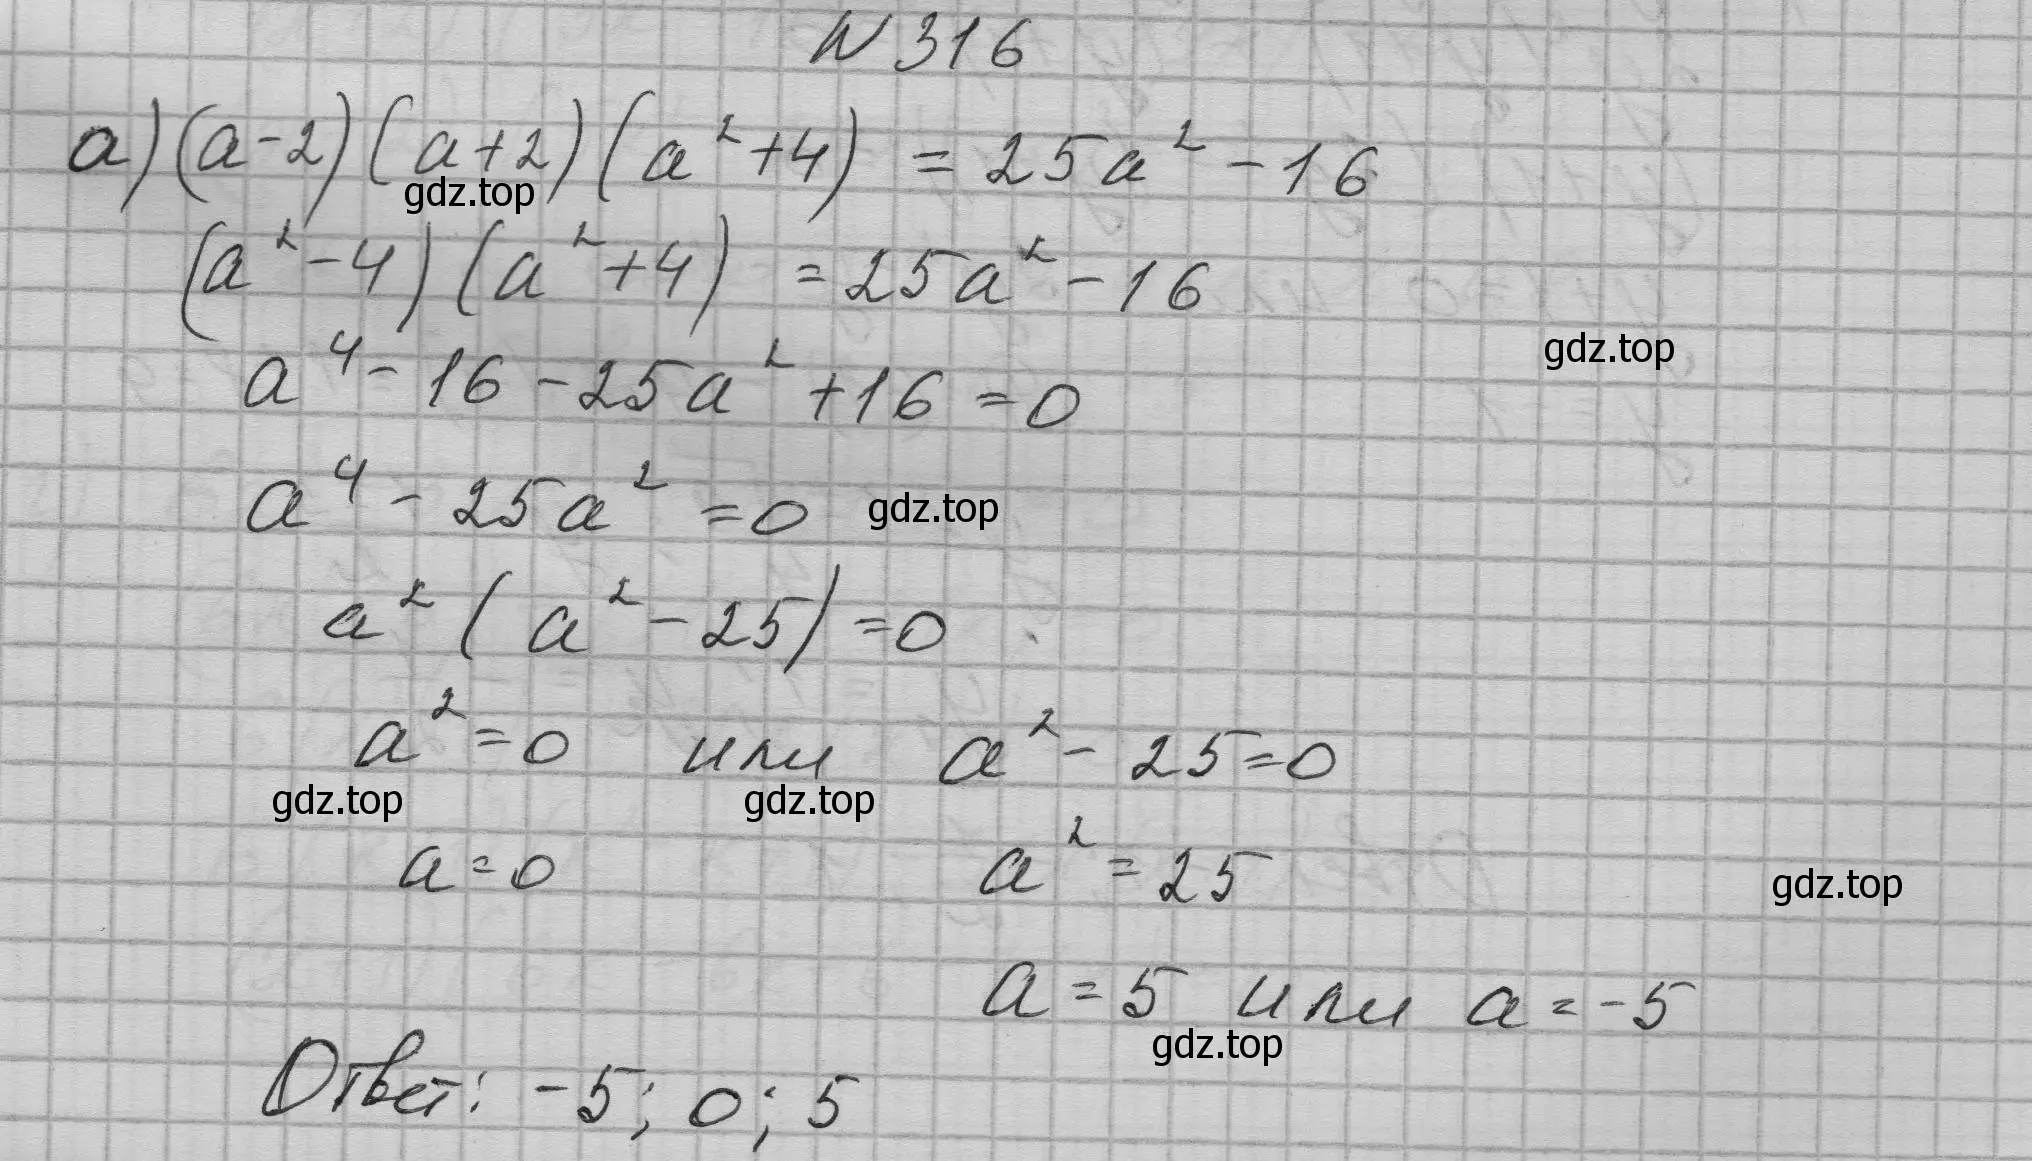 N 316
а) (a-2)(a+2)(a²+4) = 25a² - 16
gdz.top
(a²-4)(a²+4) = 25a² - 16
gdz.top
a⁴ - 16 - 25a² + 16 = 0
a⁴ - 25a² = 0 gdz.top
a²(a² - 25) = 0
a² = 0 или a² - 25 = 0
gdz.top gdz.top
a = 0 a² = 25
gdz.top
a = 5 или a = -5
gdz.top
Ответ: -5; 0; 5